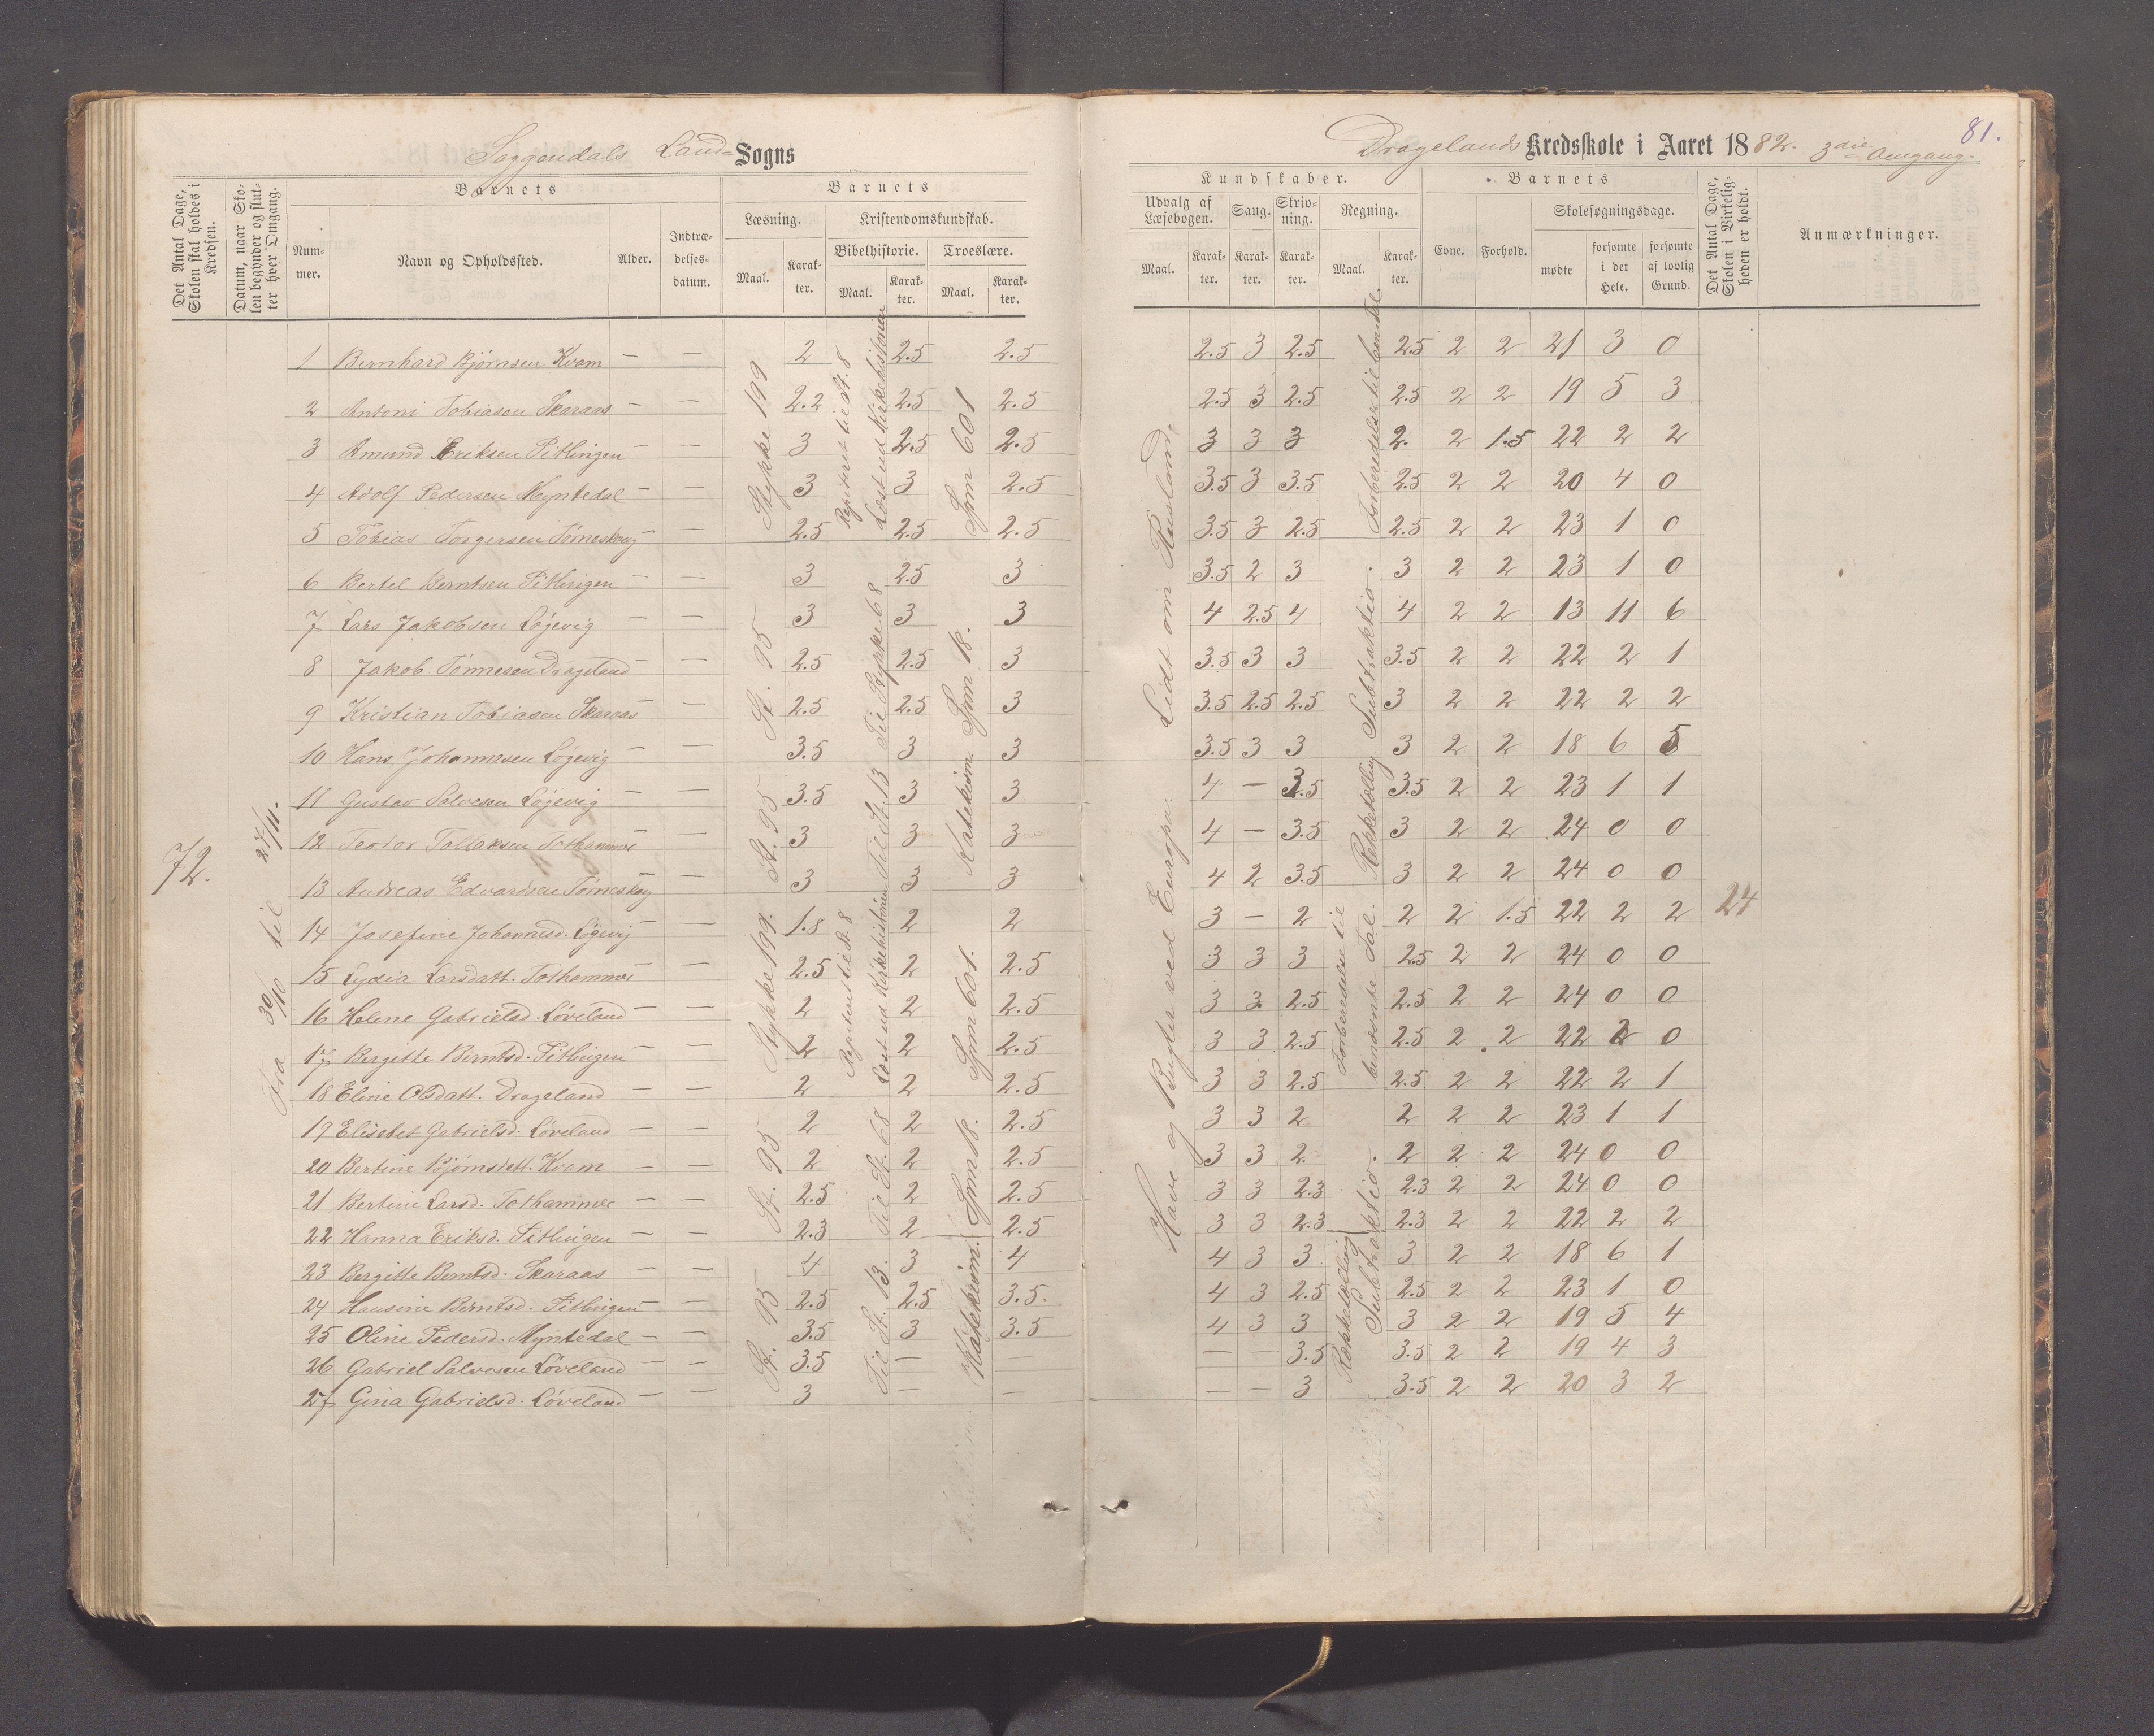 Soggendals Land- Sogns
Dragelands Kredsskole i Aaret 1882. 3die Omgang.
81.
Det Antal Dage, Skolen skal holdes i Kredsen.
Datum, naar Skolen begynder og slutter hver Omgang.
Barnets
Nummer.
Navn og Opholdssted.
Alder.
Indtrædelsesdatum.
Barnets
Læsning.
Maal.
Karakter.
Kristendomskundskab.
Bibelhistorie.
Maal.
Karakter.
Troeslære.
Maal.
Karakter.
Kundskaber.
Udvalg af Læsebogen.
Maal.
Karakter.
Sang.
Karakter.
Skrivning.
Karakter.
Regning.
Maal.
Karakter.
Barnets
Evne.
Forhold.
Skolesøgningsdage.
mødte
forsømte i det Hele.
forsømte af lovlig Grund.
Det Antal Dage, Skolen i Virkeligheden er holdt.
Anmærkninger.
72.
Fra 30/10 til 27/11.
Stykke 199
Repiteret til St. 8
Læst ud Kirkehistorien
Spm 601
St. 95
Til Stykke 68
Spm 18.
St. 95
Til St. 13
Katekism.
Stykke 199.
Repiteret til St. 8
Læst ud Kirkehistorien
Spm 601.
St. 95
Til St. 68
Spm 18.
St. 95
Til St. 13.
Katekism.
Have og Bugter ved Europa. Lidt om Rusland.
Forberedelse til benævnte Tal.
Rækketælling Subtraktio.
Forberedelse til benævnte Tal.
Subtraktio.
Rækketælling
24
1 Bernhard Bjørnsen Kvam — — 2 2.5 2.5 2.5 3 2.5 2.5 2 2 21 3 0
2 Antoni Tobiasen Skaraas — — 2.2 2.5 2.5 2.5 3 2.5 2.5 2 2 19 5 3
3 Amund Eriksen Fitlingen — — 3 2.5 2.5 3 3 3 2. 2 1.5 22 2 2
4 Adolf Pedersen Myntedal — — 3 3 2.5 3.5 3 3.5 2.5 2 2 20 4 0
5 Tobias Torgersen Tømeskoug — 2.5 2.5 2.5 3.5 3 2.5 2.5 2 2 23 1 0
6 Bertel Berntsen Fitlingen — — 3 2.5 3 3.5 2 3 3 2 2 23 1 0
7 Lars Jakobsen Løgevig — — 3 3 3 4 2.5 4 4 2 2 13 11 6
8 Jakob Tønnesen Drageland — 2.5 2.5 3 3.5 3 3 3.5 2 2 22 2 1
9 Kristian Tobiasen Skaraas — 2.5 2.5 3 3.5 2.5 2.5 3 2 2 22 2 2
10 Hans Johannesen Løgevig — — 3.5 3 3 3.5 3 3 3 2 2 18 6 5
11 Gustav Salvesen Løgevig — — 3.5 3 3 4 — 3.5 3.5 2 2 23 1 1
12 Teodor Tollaksen Tothammer — — 3 3 3 4 — 3.5 3 2 2 24 0 0
13 Andreas Edvardsen Tømeskoug — 3 3 3 4 2 3.5 3 2 2 24 0 0
14 Josefine Johannesd. Løgevig — — 1.8 2 2 3 — 2 2 2 1.5 22 2 2
15 Lydia Larsdatt. Tothammer — — 2.5 2 2.5 3 3 3 2.5 2 2 24 0 0
16 Helene Gabrielsd. Løveland — — 2 2 2.5 3 3 2.5 2.5 2 2 24 0 0
17 Bergitte Berntsd. Fitlingen — — 2 2 2.5 3 3 2.5 2.5 2 2 22 2 0
18 Eline Olsdatt. Drageland — — 2 2 2.5 3 3 2.5 2.5 2 2 22 2 1
19 Elisebet Gabrielsd. Løveland — — 2 2 2.5 3 3 2 2 2 2 23 1 1
20 Bertine Bjørnsdatt. Kvam — — 2 2 2.5 3 3 2. 2 2 2 24 0 0
21 Bertine Larsd. Tothammer — — 2.5 2 2.5 3 3 2.3 2.3 2 2 24 0 0
22 Hanna Eriksd. Fitlingen — — 2.3 2 2.5 3 3 2.3 2.3 2 2 22 2 2
23 Bergitte Berntsd. Skaraas — — 4 3 4 4 3 3 3 2 2 18 6 1
24 Hansine Berntsd. Fitlingen — — 2.5 2.5 3.5. 4 3 2.5 2.5 2 2 23 1 0
25 Oline Pedersd. Myntedal — — 3.5 3 3.5 4 3 3 3 2 2 19 5 4
26 Gabriel Salvesen Løveland — 3.5 — — — — 3.5 3.5 2 2 19 4 3
27 Gina Gabrielsd. Løveland — — 3 — — — — 3 3.5 2 2 20 3 2